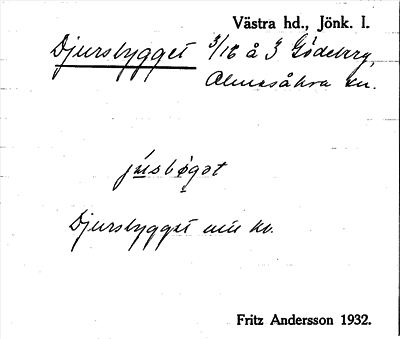 Västra hd., Jönk. l.
Djursbygget 3/16 å 3 Gödeberg,
Almesåkra sn.
júsbøgət
Djursbygget
Fritz Andersson 1932.